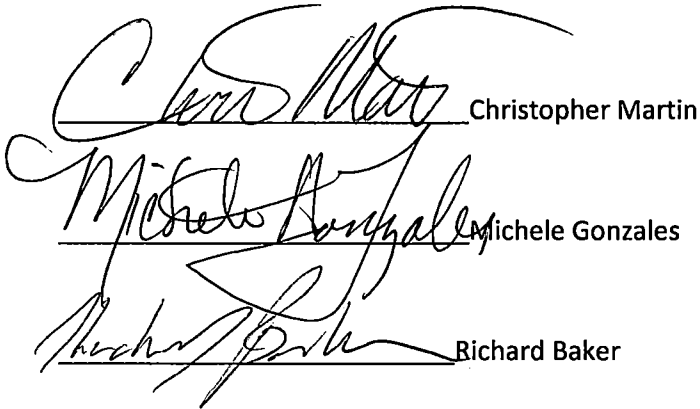 Chris Mart Christopher Martin
Michele Gonzales Michele Gonzales
Richard Baker